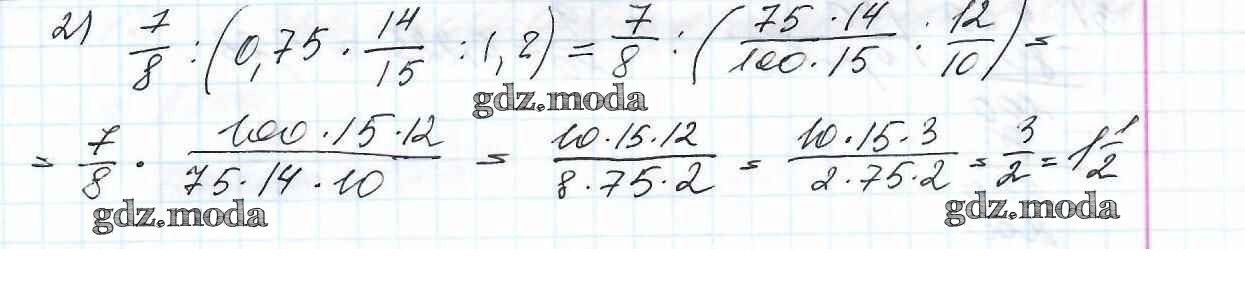 2) 7/8 : (0,75 · 14/15 : 1,2) = 7/8 : (75 · 14 / 100 · 15 : 12/10) =
gdz.moda
= 7/8 · 100 · 15 · 12 / 75 · 14 · 10 = 10 · 15 · 12 / 8 · 75 · 2 = 10 · 15 · 3 / 2 · 75 · 2 = 3/2 = 1 1/2
gdz.moda
gdz.moda